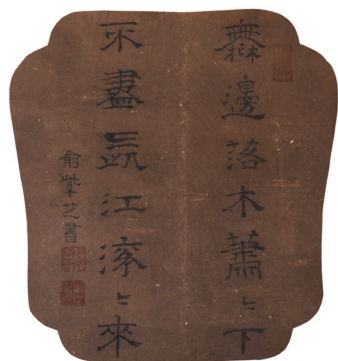 無邊落木蕭〻下
不盡長江滚〻來
俞紫芝書